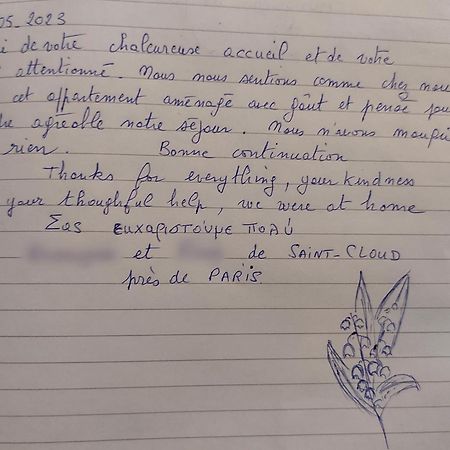 05_2023
de votre chaleureuse accueil et de votre
attentionné. Nous nous sentions comme chez nous
cet appartement aménagé avec goût et pensé pour
agréable notre séjour. Nous n'avons manqué
rien. Bonne continuation
Thanks for everything, your kindness
your thoughtful help, we were at home
Σας ευχαριστούμε πολύ
et de SAINT-CLOUD
près de PARIS.